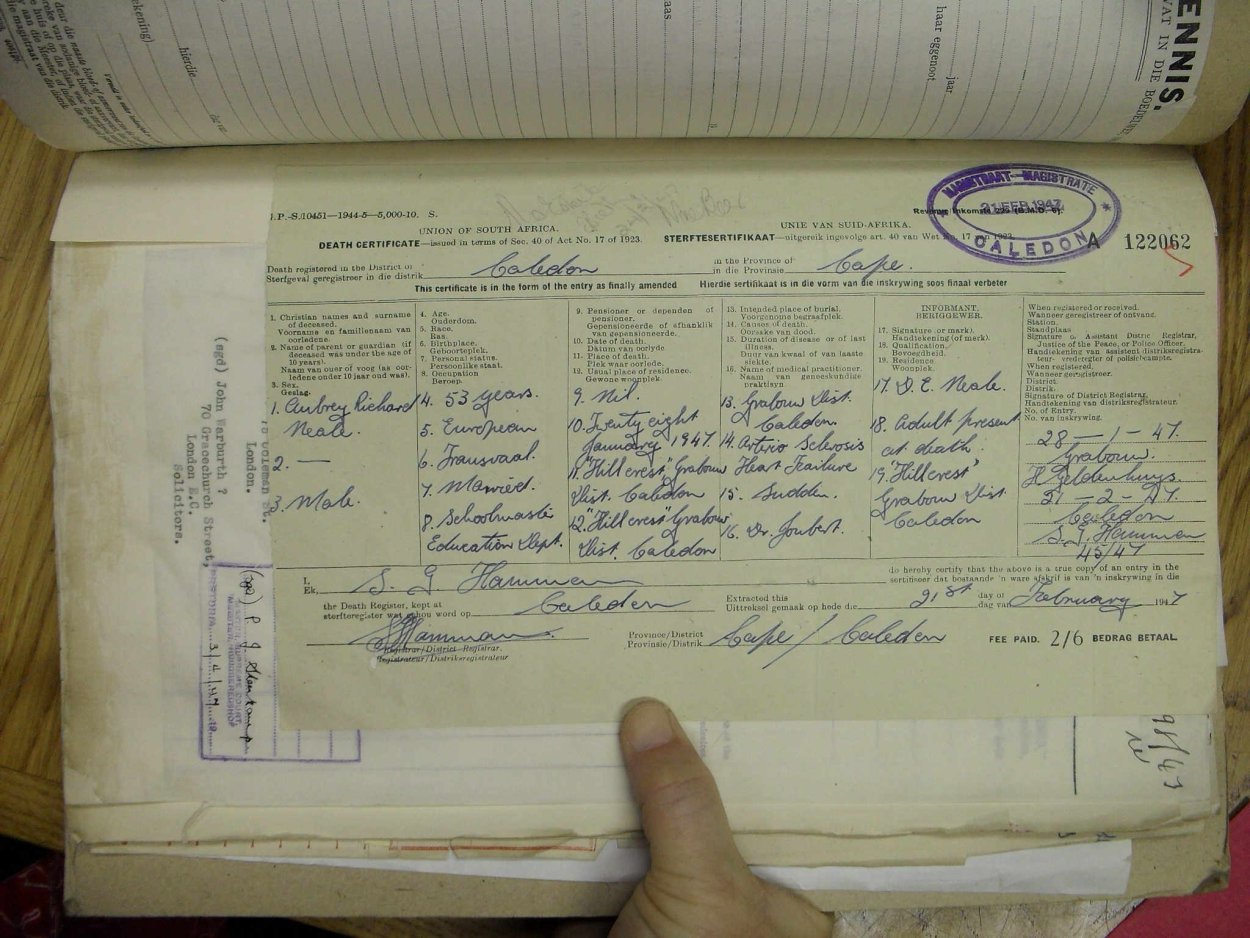 ENNIS.
WAT IN DIE
haar eggenoot
jaar
aas
hierdie
ekening)
MAGISTRAAT—MAGISTRATE
21 FEB 1947
CALEDON
J.P.-S./10451—1944-5—5,000-10. S.
UNION OF SOUTH AFRICA.
UNIE VAN SUID-AFRIKA.
DEATH CERTIFICATE—issued in terms of Sec. 40 of Act No. 17 of 1923.
STERFTESERTIFIKAAT—uitgereik ingevolge art. 40 van Wet No. 17 van 1923.
A 122062
Death registered in the District of
Sterfgeval geregistreer in die distrik
Caledon
in the Province of
in die Provinsie
Cape.
This certificate is in the form of the entry as finally amended
Hierdie sertifikaat is in die vorm van die inskrywing soos finaal verbeter
1. Christian names and surname
of deceased.
Voorname en familienaam van
oorledene.
2. Name of parent or guardian (if
deceased was under the age of
10 years).
Naam van ouer of voog (as oor-
ledene onder 10 jaar oud was).
3. Sex.
Geslag.
1. Aubrey Richard
Neale.
2. —
3. Male.
4. Age.
Ouderdom.
5. Race.
Ras.
6. Birthplace.
Geboorteplek.
7. Personal status.
Persoonlike staat.
8. Occupation
Beroep.
4. 53 years.
5. European
6. Transvaal.
7. Married.
8. Schoolmaster
Education Dept.
9. Pensioner or dependent of
pensioner.
Gepensioeneerde of afhanklik
van gepensioeneerde.
10. Date of death.
Datum van oorlyde.
11. Place of death.
Plek waar oorlede.
12. Usual place of residence.
Gewone woonplek.
9. Nil.
10. Twenty eight
January 1947.
11. "Hillcrest" Grabouw
Dist. Caledon
12. "Hillcrest" Grabouw
Dist Caledon
13. Intended place of burial.
Voorgenome begraafplek.
14. Causes of death.
Oorsake van dood.
15. Duration of disease or of last
illness.
Duur van kwaal of van laaste
siekte.
16. Name of medical practitioner.
Naam van geneeskundige
praktisyn.
13. Grabouw Dist.
Caledon.
14. Arterio Sclerosis
Heart Failure
15. Sudden.
16. Dr. Joubert.
INFORMANT.
BERIGGEWER.
17. Signature (or mark).
Handtekening (of merk).
18. Qualification.
Bevoegdheid.
19. Residence.
Woonplek.
17. D. E. Neale.
18. Adult present
at death.
19. "Hillcrest"
Grabouw Dist.
Caledon
When registered or received.
Wanneer geregistreer of ontvang.
Station.
Standplaas
Signature of Assistant District Registrar,
Justice of the Peace, or Police Officer.
Handtekening van assistent distriksregistra-
teur- vrederegter of polisiebeampte.
When registered.
Wanneer geregistreer.
District.
Distrik.
Signature of District Registrar.
Handtekening van distriksregistrateur.
No. of Entry.
No. van inskrywing.
28 — 1 — 47.
Grabouw.
H Geldenhuys.
21 — 2 — 47
Caledon
S. G. Hamman
45/47
I,
Ek,
S. G. Hamman
do hereby certify that the above is a true copy of an entry in the
sertifiseer dat bostaande 'n ware afskrif is van 'n inskrywing in die
the Death Register, kept at
sterfteregister wat gehou word op
Caledon
Extracted this
Uittreksel gemaak op hede die
21st
day of
dag van
February
1947
SGHamman.
Registrar/District Registrar.
Registrateur/Distriksregistrateur
Province/District
Provinsie/Distrik
Cape / Caledon
FEE PAID. 2/6 BEDRAG BETAAL.
Coleman St.
London.
(sgd) John Warburth ?
70 Gracechurch Street,
London E.C.
Solicitors.
(sgd) P. J
3/4/47